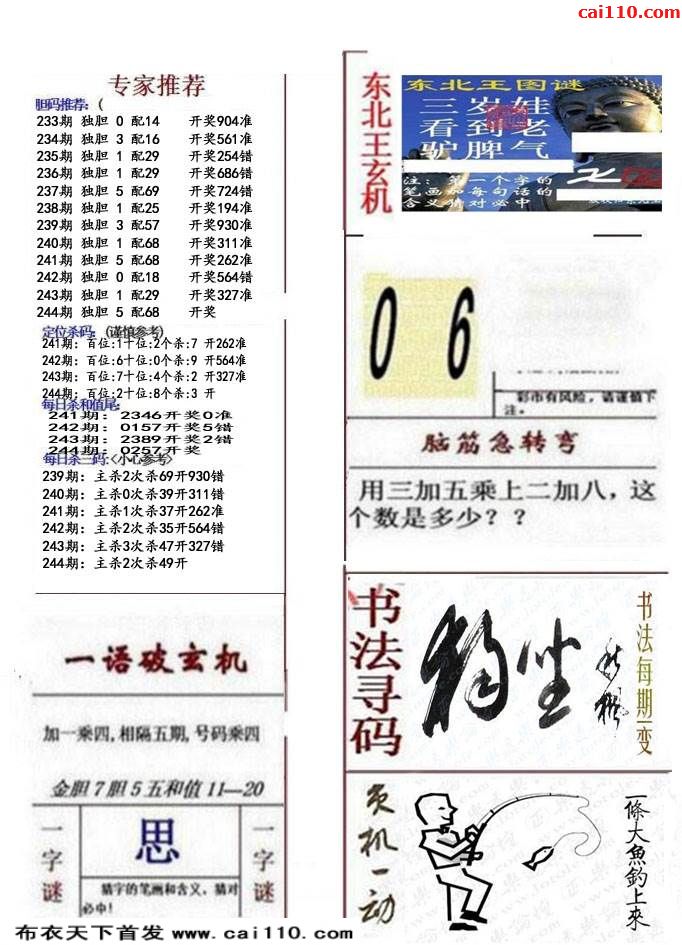 cai110.com
专家推荐
胆码推荐：(
233期 独胆 0 配14 开奖904准
234期 独胆 3 配16 开奖561准
235期 独胆 1 配29 开奖254错
236期 独胆 1 配29 开奖686错
237期 独胆 5 配69 开奖724错
238期 独胆 1 配25 开奖194准
239期 独胆 3 配57 开奖930准
240期 独胆 1 配68 开奖311准
241期 独胆 5 配68 开奖262准
242期 独胆 0 配18 开奖564错
243期 独胆 1 配29 开奖327准
244期 独胆 5 配68 开奖
定位杀码：(谨慎参考)
241期：百位:1十位:2个杀:7 开262准
242期：百位:6十位:0个杀:9 开564准
243期：百位:7十位:4个杀:2 开327准
244期：百位:2十位:8个杀:3 开
每日杀和值尾:
241期：2346开奖0准
242期：0157开奖5错
243期：2389开奖2错
244期：0257开奖
每日杀三码:〈小心参考〉
239期：主杀2次杀69开930错
240期：主杀0次杀39开311错
241期：主杀1次杀37开262准
242期：主杀2次杀35开564错
243期：主杀3次杀47开327错
244期：主杀2次杀49开
一语破玄机
加一乘四,相隔五期,号码乘四
金胆7胆5五和值11—20
一字谜
思
一字谜
猜字的笔画和含义，猜对
必中！
东北王玄机
东北王图谜
三岁娃
看到老
驴脾气
注：第一个字的
笔画加每句话的
含义猜对必中
0 6
彩市有风险，请谨慎下
注。
脑筋急转弯
用三加五乘上二加八，这
个数是多少？？
书法寻码
书法每期一变
灵机一动
一條大魚釣上來
布衣天下首发 www.cai110.com